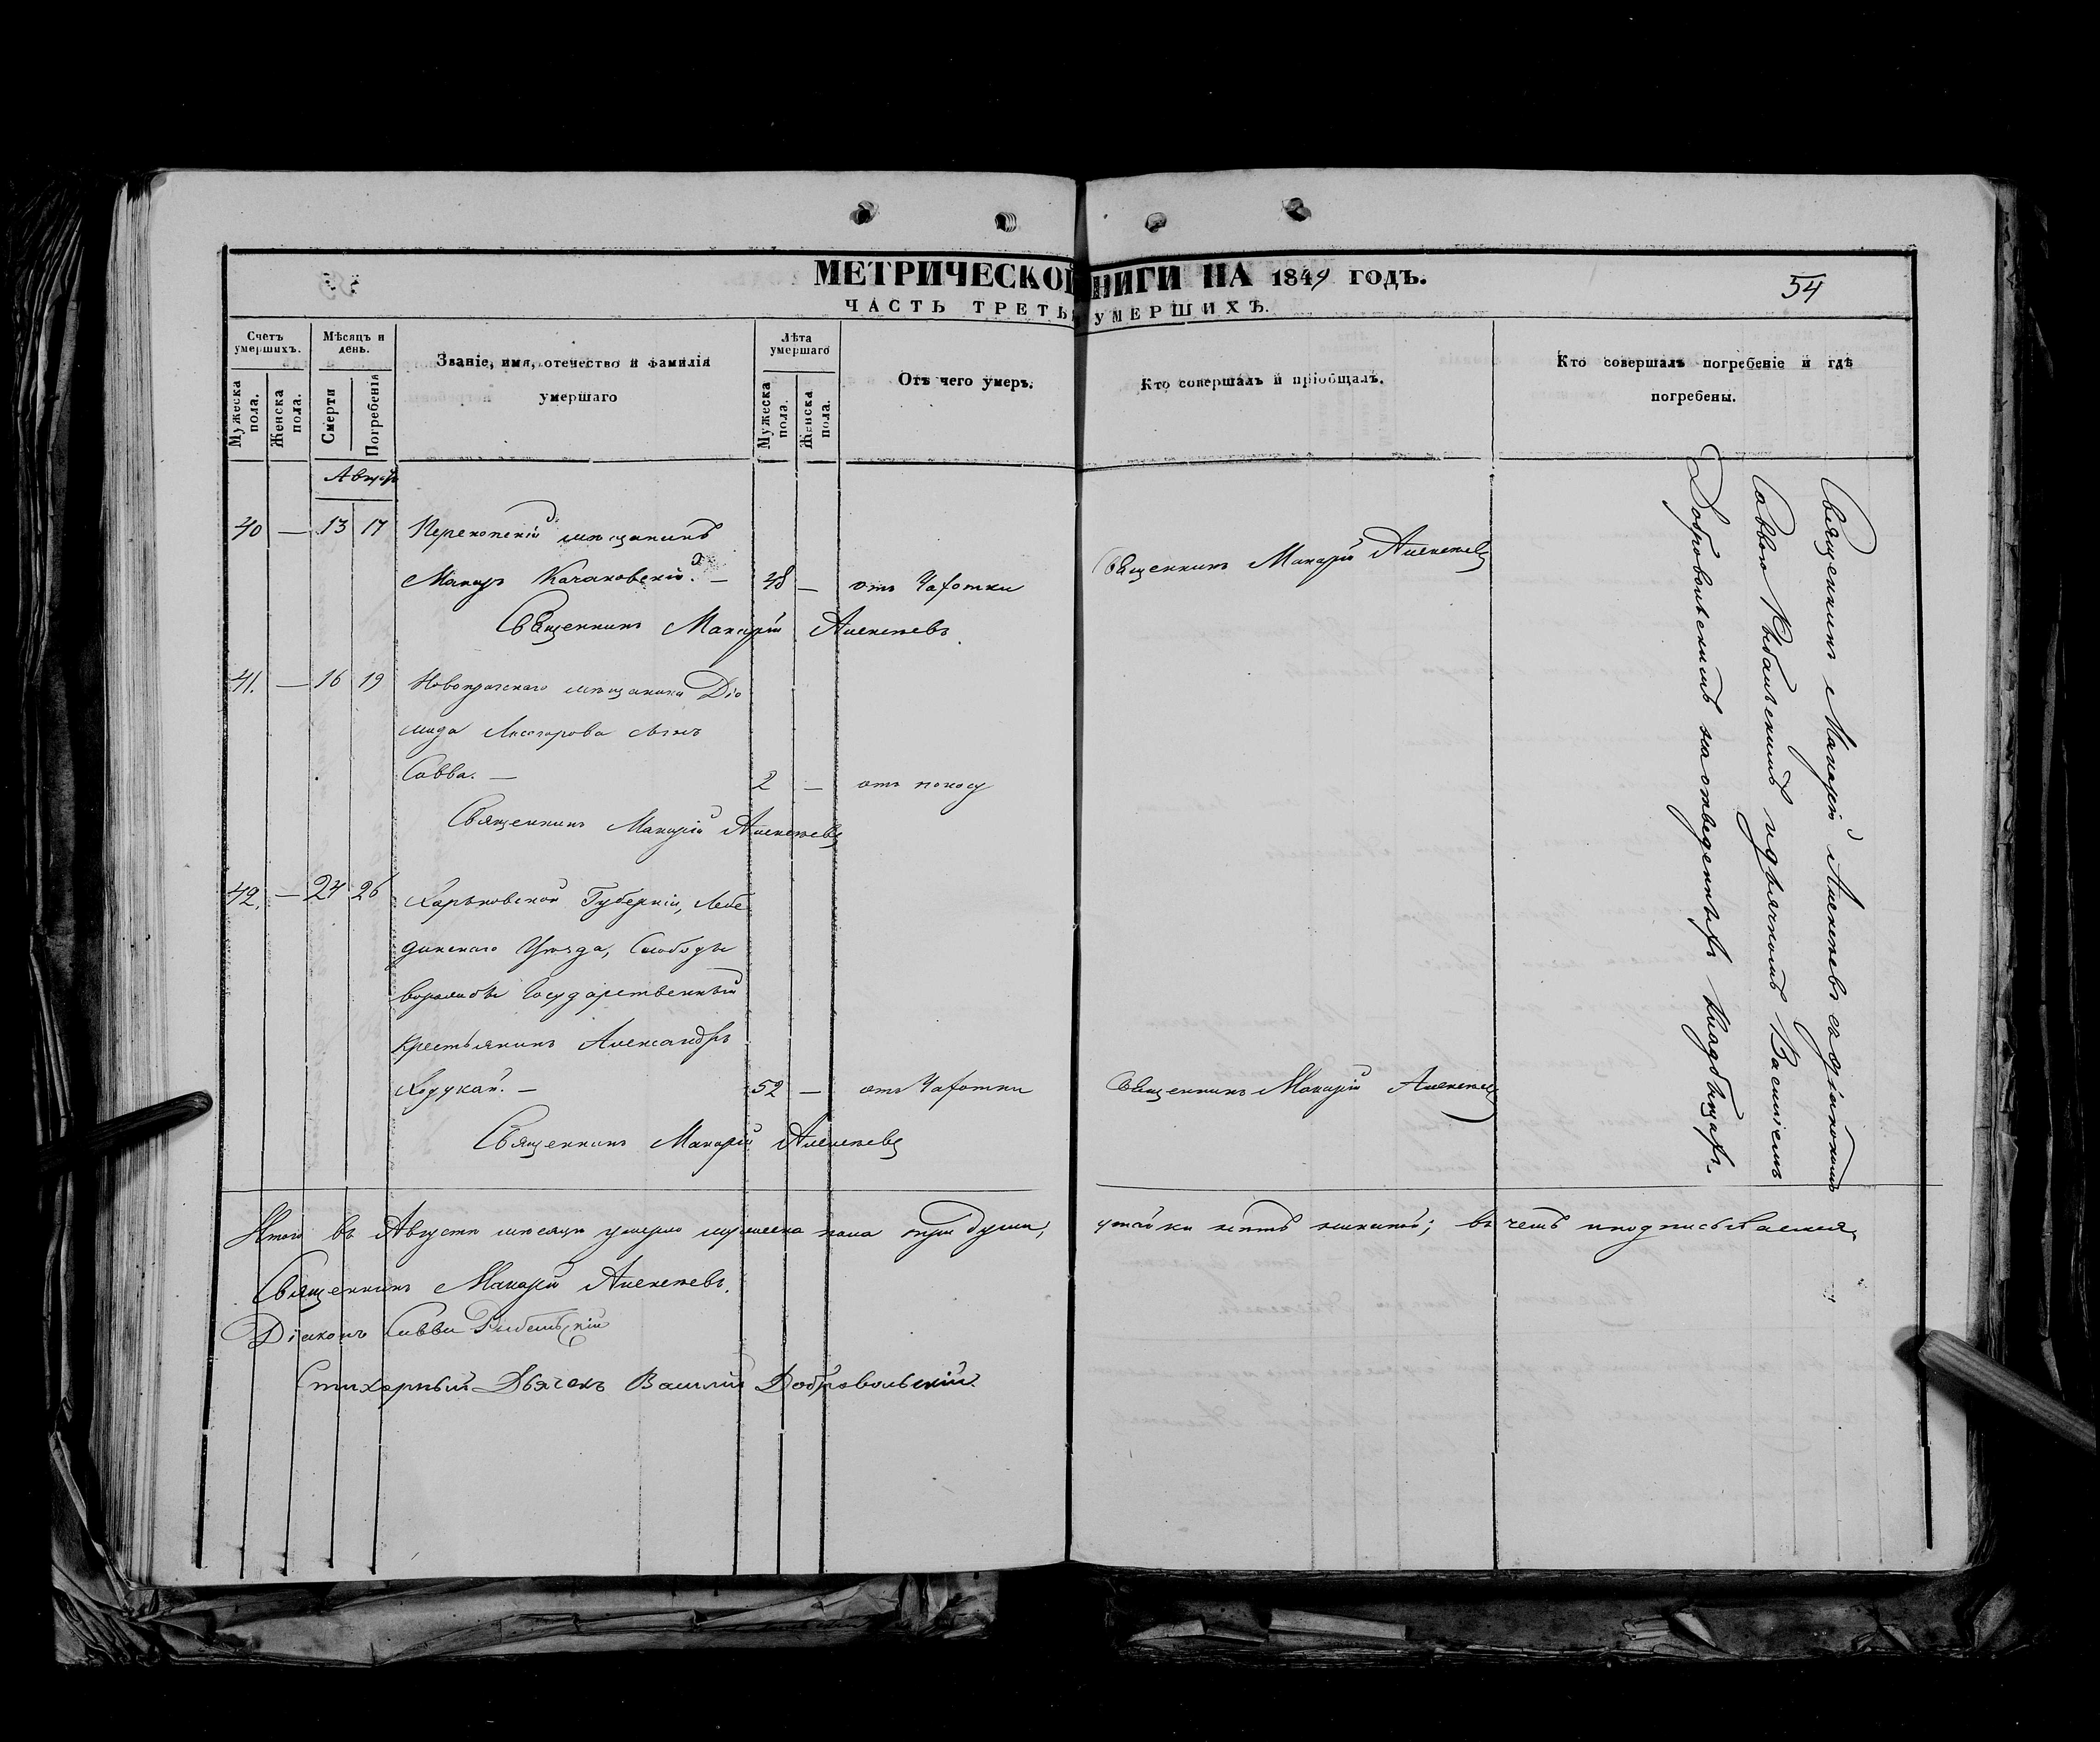 МЕТРИЧЕСКОЙ КНИГИ НА 1849 ГОДЪ.
54
ЧАСТЬ ТРЕТЬЯ УМЕРШИХЪ.
Счетъ умершихъ.
Мужеска пола.
Женска пола.
Мѣсяцъ и день.
Смерти
Погребенія
Званіе, имя, отечество и фамилія
умершаго
Лѣта умершаго
Мужеска пола.
Женска пола.
Отъ чего умеръ.
Кто совершалъ и пріобщалъ.
Кто совершалъ погребеніе и гдѣ
погребены.
Августъ
40 — 13 17 Перекопскій мѣщанинъ
Макаръ Качановскій. — 48 — отъ Чахотки Священникъ Макарій Алексѣевъ
Священникъ Макарій Алексѣевъ.
41. — 16 19 мѣщанина Діо
мида сынъ
Савва. — 2 — отъ поносу
Священникъ Макарій Алексѣевъ
42. — 24 26 Харьковской Губерніи, Лебе
динскаго Уѣзда, Слободы
Ворожбы Государственный
Крестьянинъ Александръ
52 — отъ Чахотки Священникъ Макарій Алексѣевъ
Священникъ Макарій Алексѣевъ
Священникъ Макарій Алексѣевъ съ діакономъ
Саввою Рыбальскимъ и дьячкомъ Василіемъ
Добровольскимъ на отведенныхъ кладбищахъ.
Итого въ Августѣ мѣсяцѣ умерло мужеска пола три души, женской; въ чемъ и подписываемся
Священникъ Макарій Алексѣевъ.
Діаконъ Савва Рыбальскій
Стихарный Дьячекъ Василій Добровольскій.